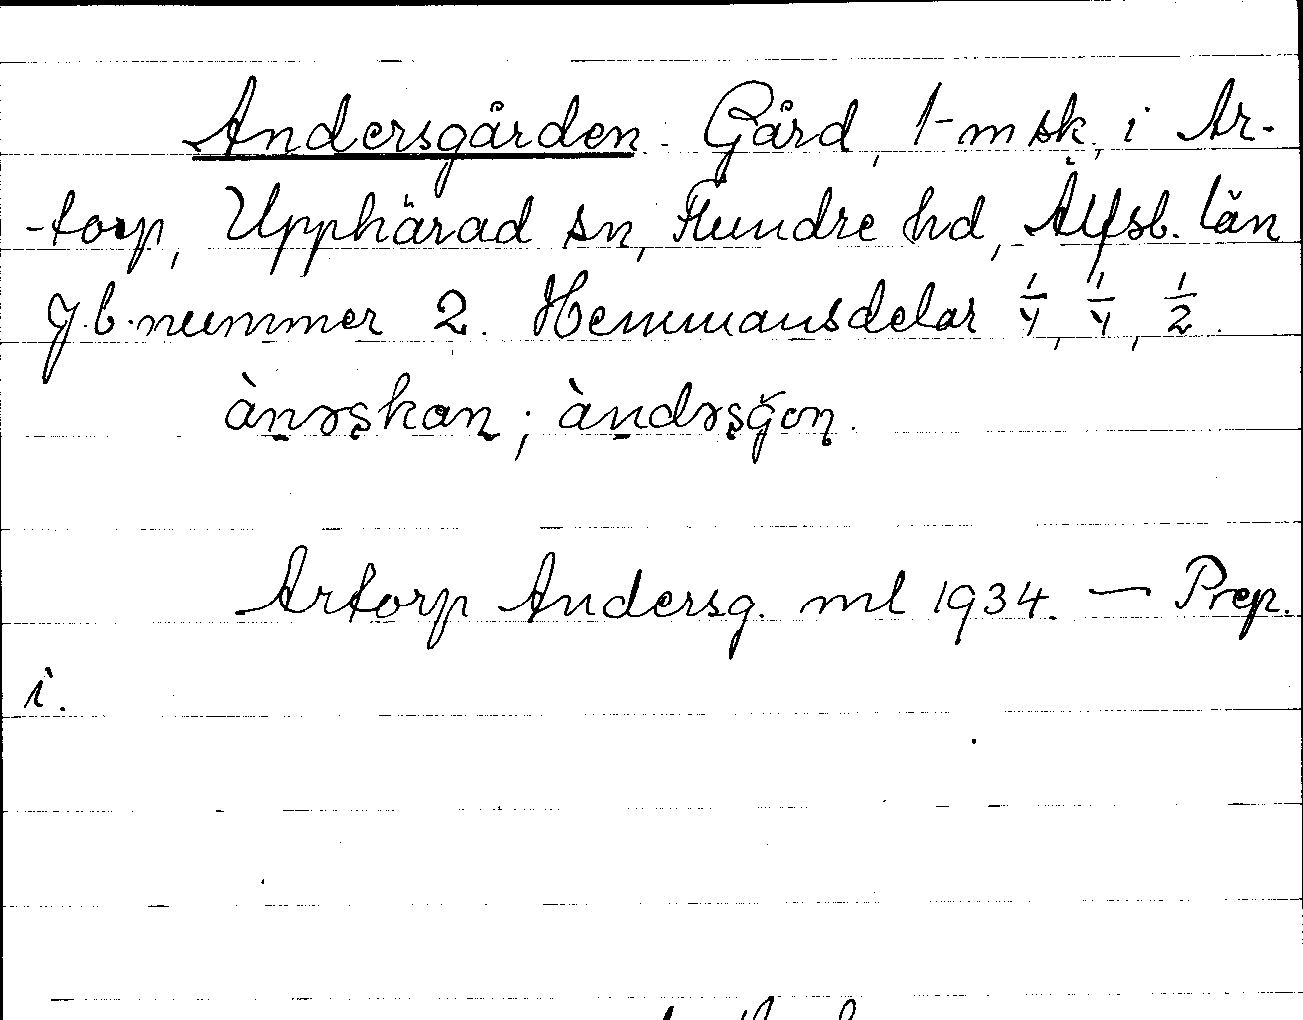 Andersgården. Gård, 1-m sk, i Ar-
-torp, Upphärad sn, Flundre hd, Älfsb. län
J.b. nummer 2. Hemmansdelar 1/4, 1/4, 1/2.
ànəşkan; àndəşğon.
Artorp Andersg. ml 1934. — Prep.
i.